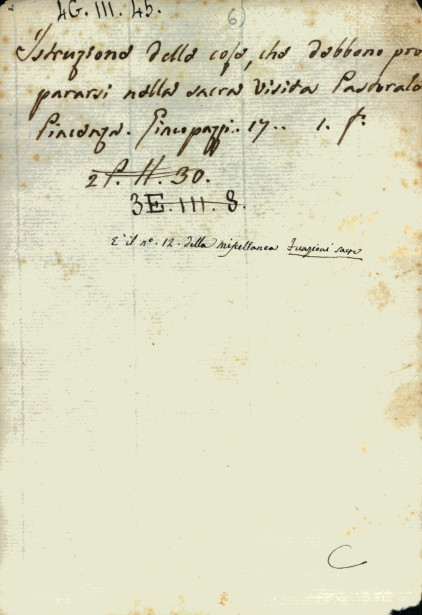 4G. III. 45.
6)
Istruzione delle cose, che debbono pre
pararsi nella sacra Visita Pastorale
Piacenza. Giacopazzi. 17.. 1. f.
2 P. II. 30.
3E. III. 8.
È il n.º 12. della miscellanea Funzioni sacre
C